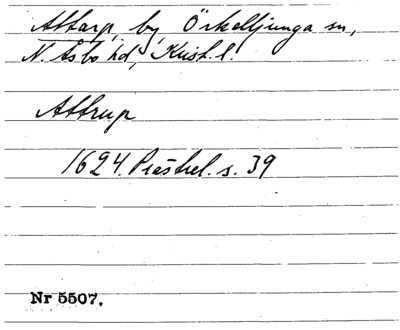 Attarp, by, Örkelljunga sn,
N. Åsbo hd, Krist. l.
Attrup
1624. Präsrel. s. 39
Nr 5507.